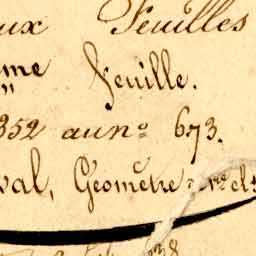 ux Feuilles
me Feuille.
352 au nº 673.
val, Géomètre